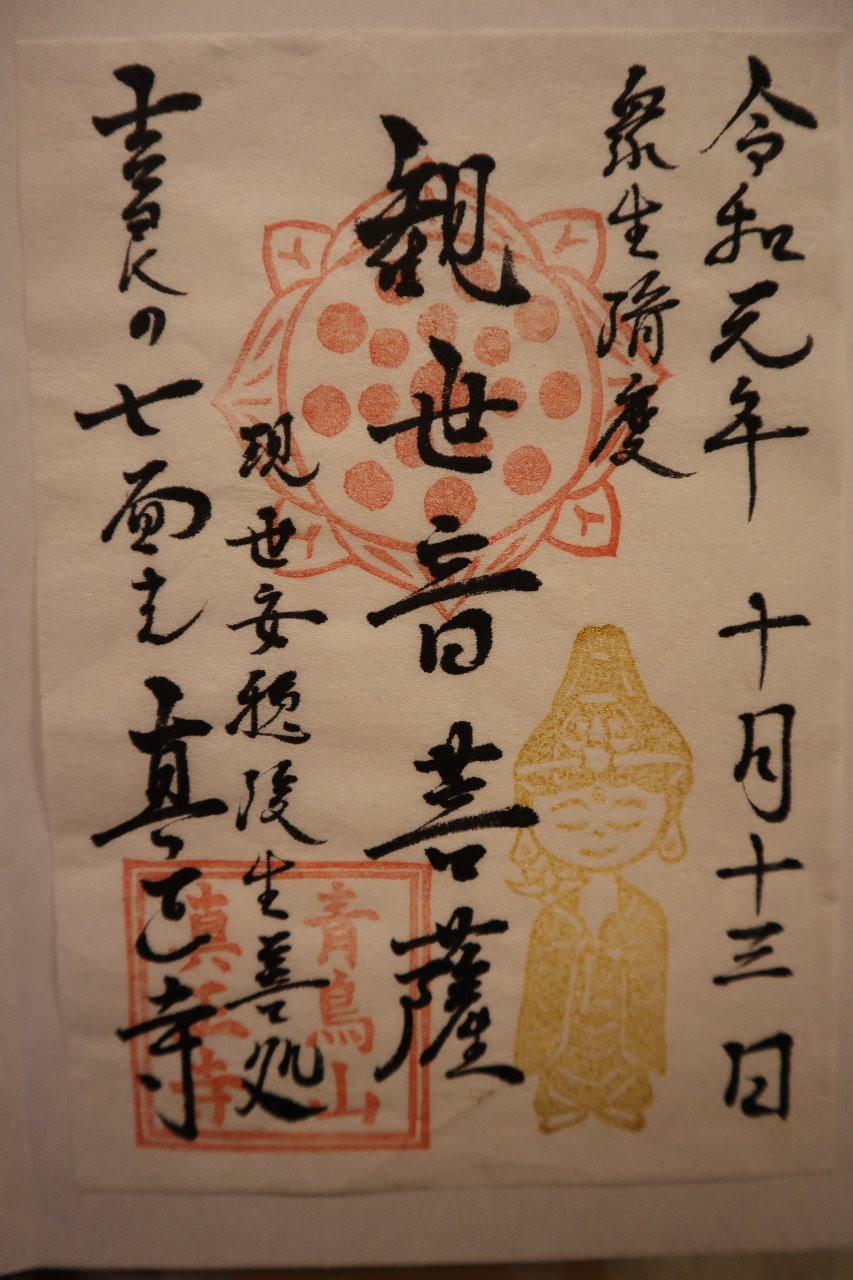 令和元年 十月十三日
衆生済度
観世音菩薩
現世安穏後生善処
の七面 真正寺
青鳥山
真正寺